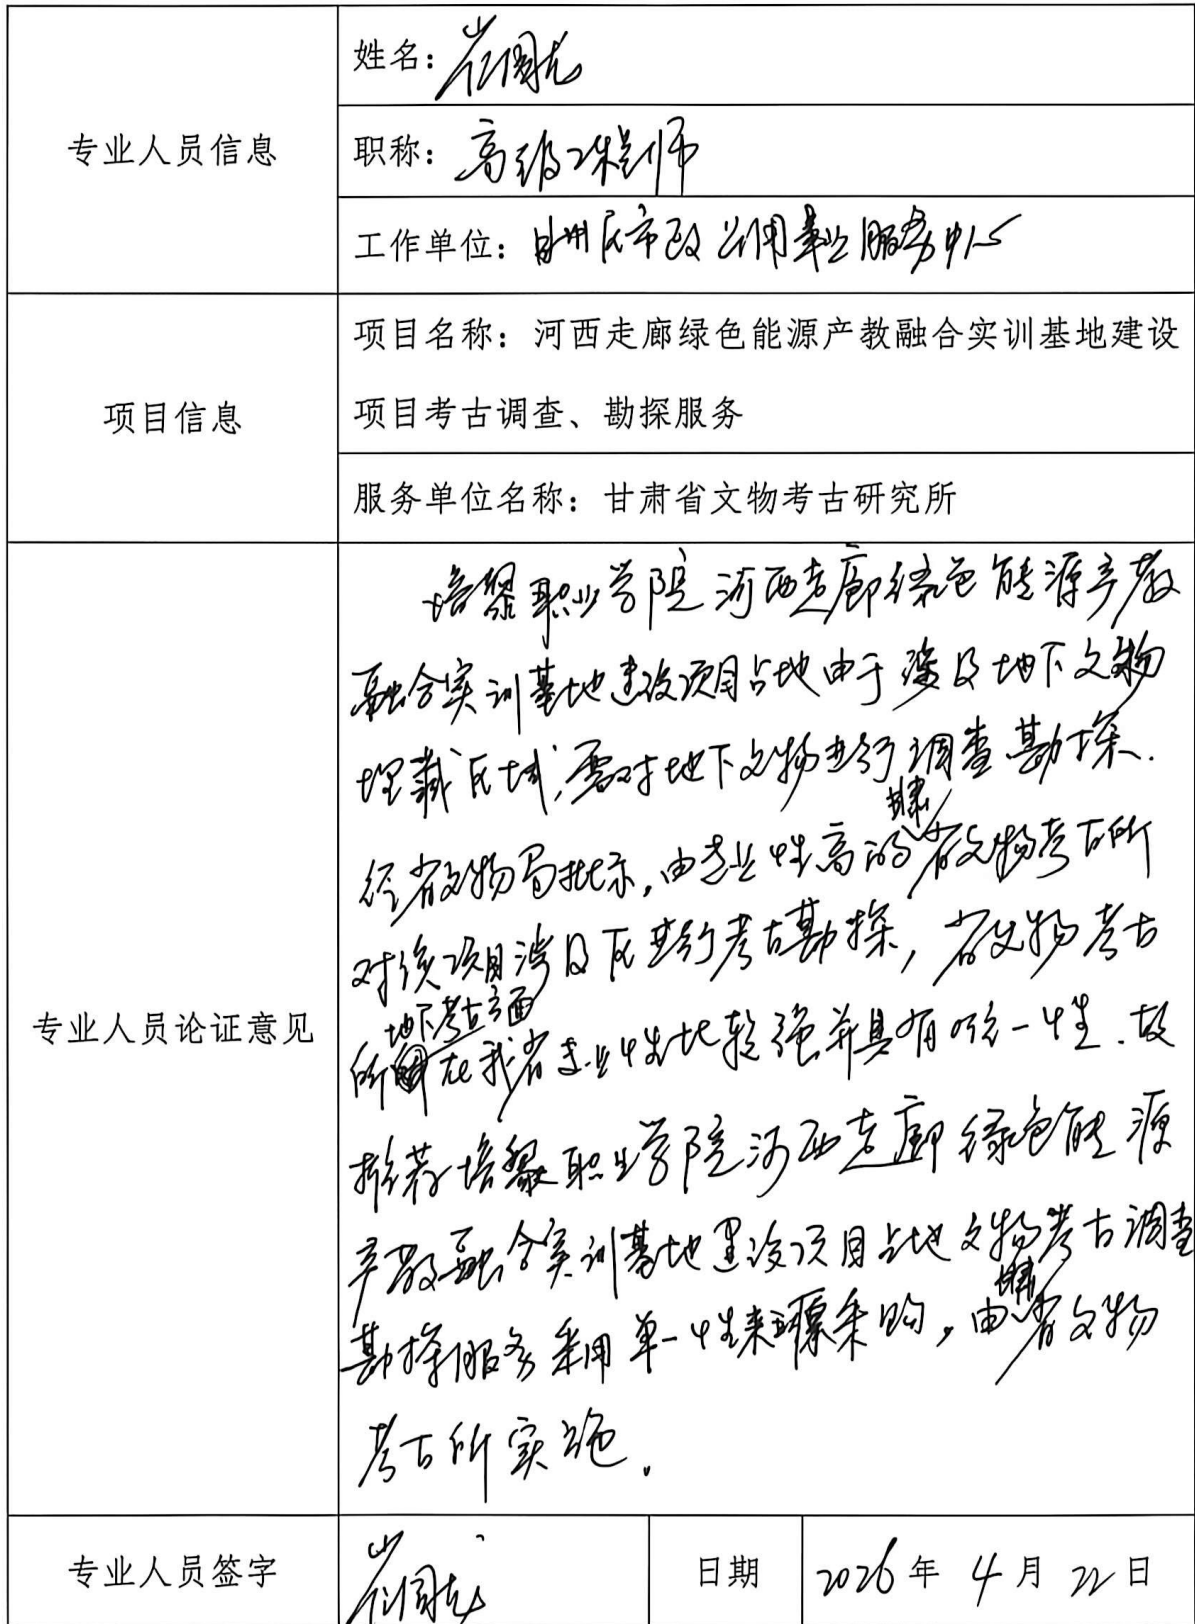 专业人员信息
姓名：崔国龙
职称：高级工程师
工作单位：甘州区市政公用事业服务中心
项目信息
项目名称：河西走廊绿色能源产教融合实训基地建设
项目考古调查、勘探服务
服务单位名称：甘肃省文物考古研究所
专业人员论证意见
培黎职业学院河西走廊绿色能源产教
融合实训基地建设项目占地由于涉及地下文物
埋藏区域，需对地下文物进行调查勘探．
经省文物局批示，由专业性高的甘肃省文物考古所
对该项目涉及区进行考古勘探，省文物考古
所地下考古方面在我省专业性比较强并具有唯一性．故
推荐培黎职业学院河西走廊绿色能源
产教融合实训基地建设项目占地文物考古调查
勘探服务采用单一性来源采购，由甘肃省文物
考古所实施。
专业人员签字
崔国龙
日期
2026年4月22日